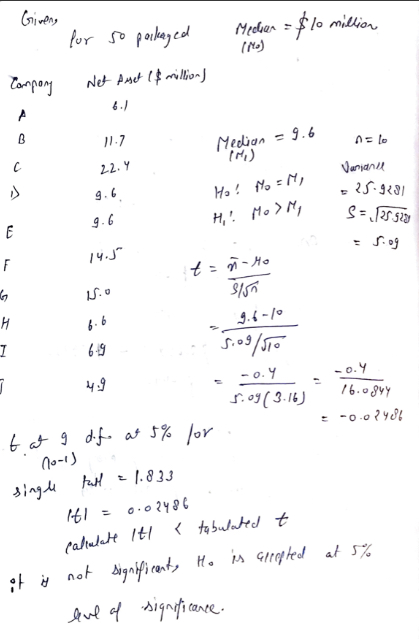 Given,
for 50 packaged Median = $10 million
(M0)
Company Net Asset ($ million)
A 6.1
B 11.7 Median = 9.6 n = 10
(M1)
C 22.4 Variance
D 9.6 H0: M0 = M1 = 25.9281
E 9.6 H1: M0 > M1 S = √25.9281
= 5.09
F 14.5 t = - M0
S/√n
G 15.0
H 6.6 = 9.6-10
5.09/√10
I 6.9
J 4.9 = -0.4 = -0.4
5.09(3.16) 16.0844
= -0.02486
t at 9 d.f. at 5% for
(10-1)
single = 1.833
|t| = 0.02486
calculate |t| < tabulated t
it is not significant, H0 is accepted at 5%
level of significance.